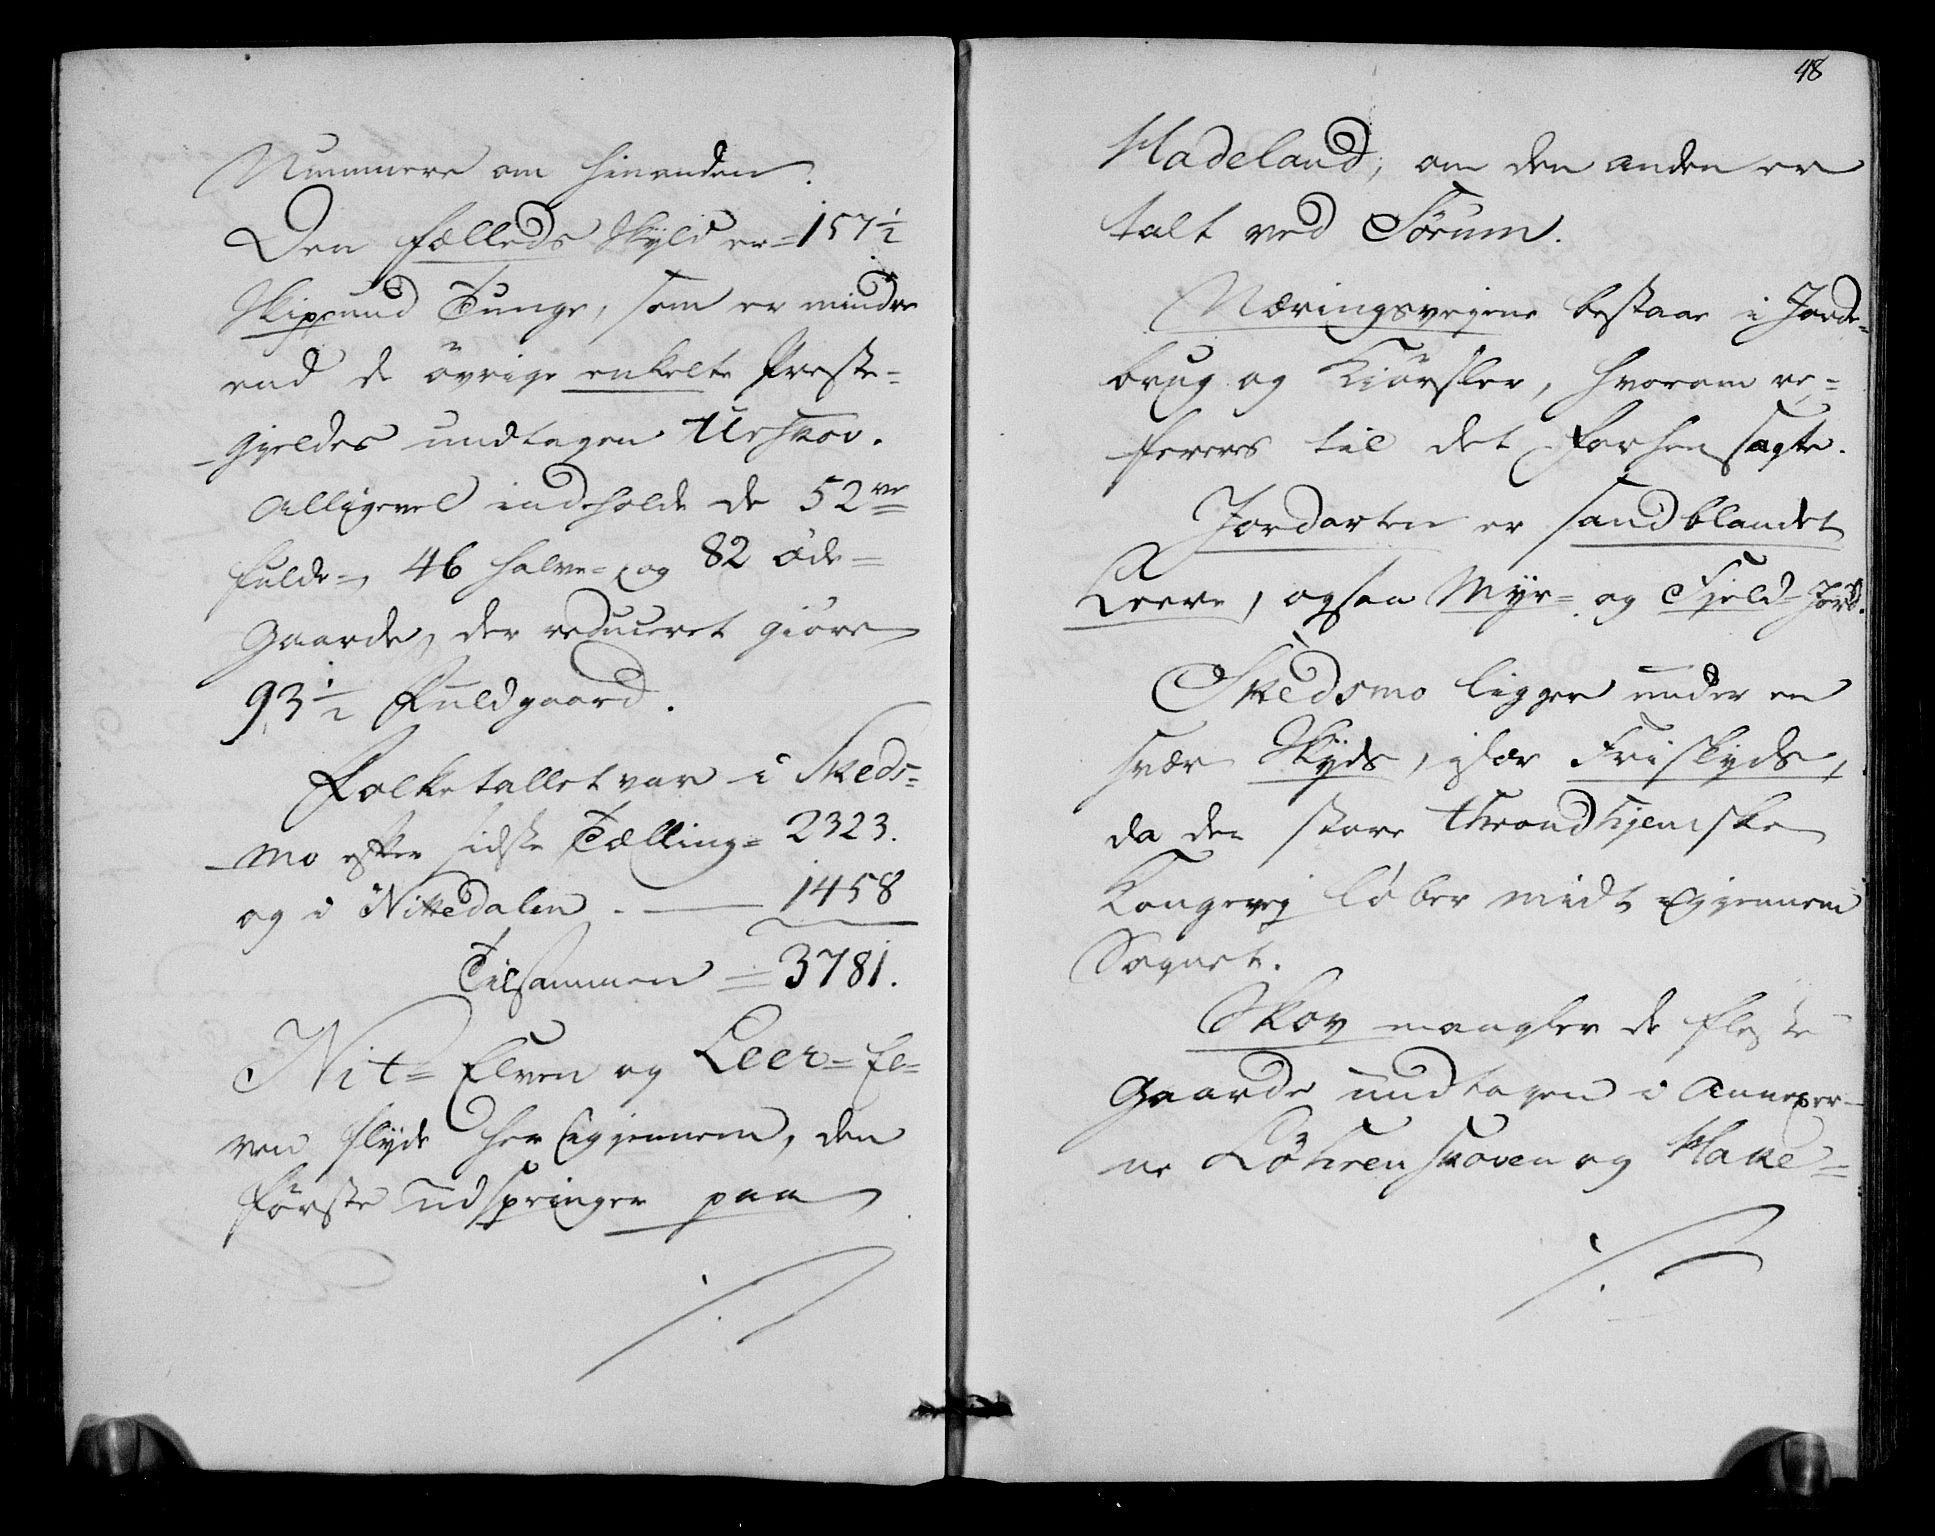 Nummere om hinanden.
Den fælleds Skyld er = 157 1/2
Skippund Tunge, som er mindre
end de övrige enkelte Præste-
gjeldes undtagen Urskov.
Alligevel indeholde de 52 ve
fulde-, 46 halve- og 82 öde-
Gaarde, der reduceret giöre
93 1/2 Fuldgaard.
Folketallet var i Skeds-
mo efter sidste Tælling = 2323.
og i Nittedalen . — 1458
Tilsammen = 3781.
Nit- Elven og Leer- El-
ven flyde her igjennem, den
förste udspringer paa
48
Hadeland, om den anden er
talt ved Sörum.
Næringsvejene bestaae i Jord-
brug og Kjörsler, hvorom re-
fereres til det forhen sagte.
Jordarten er sandblandet
Leere, ogsaa Myr- og Fjeld-Jord.
Skedsmo ligger under en
svær Skyds, især Friskyds,
da den store throndhjemske
Kongevej löber midt igjennem
Sognet.
Skov mangler de fleste
Gaarde undtagen i Annexer-
ne Löhrenskoven og Hake-